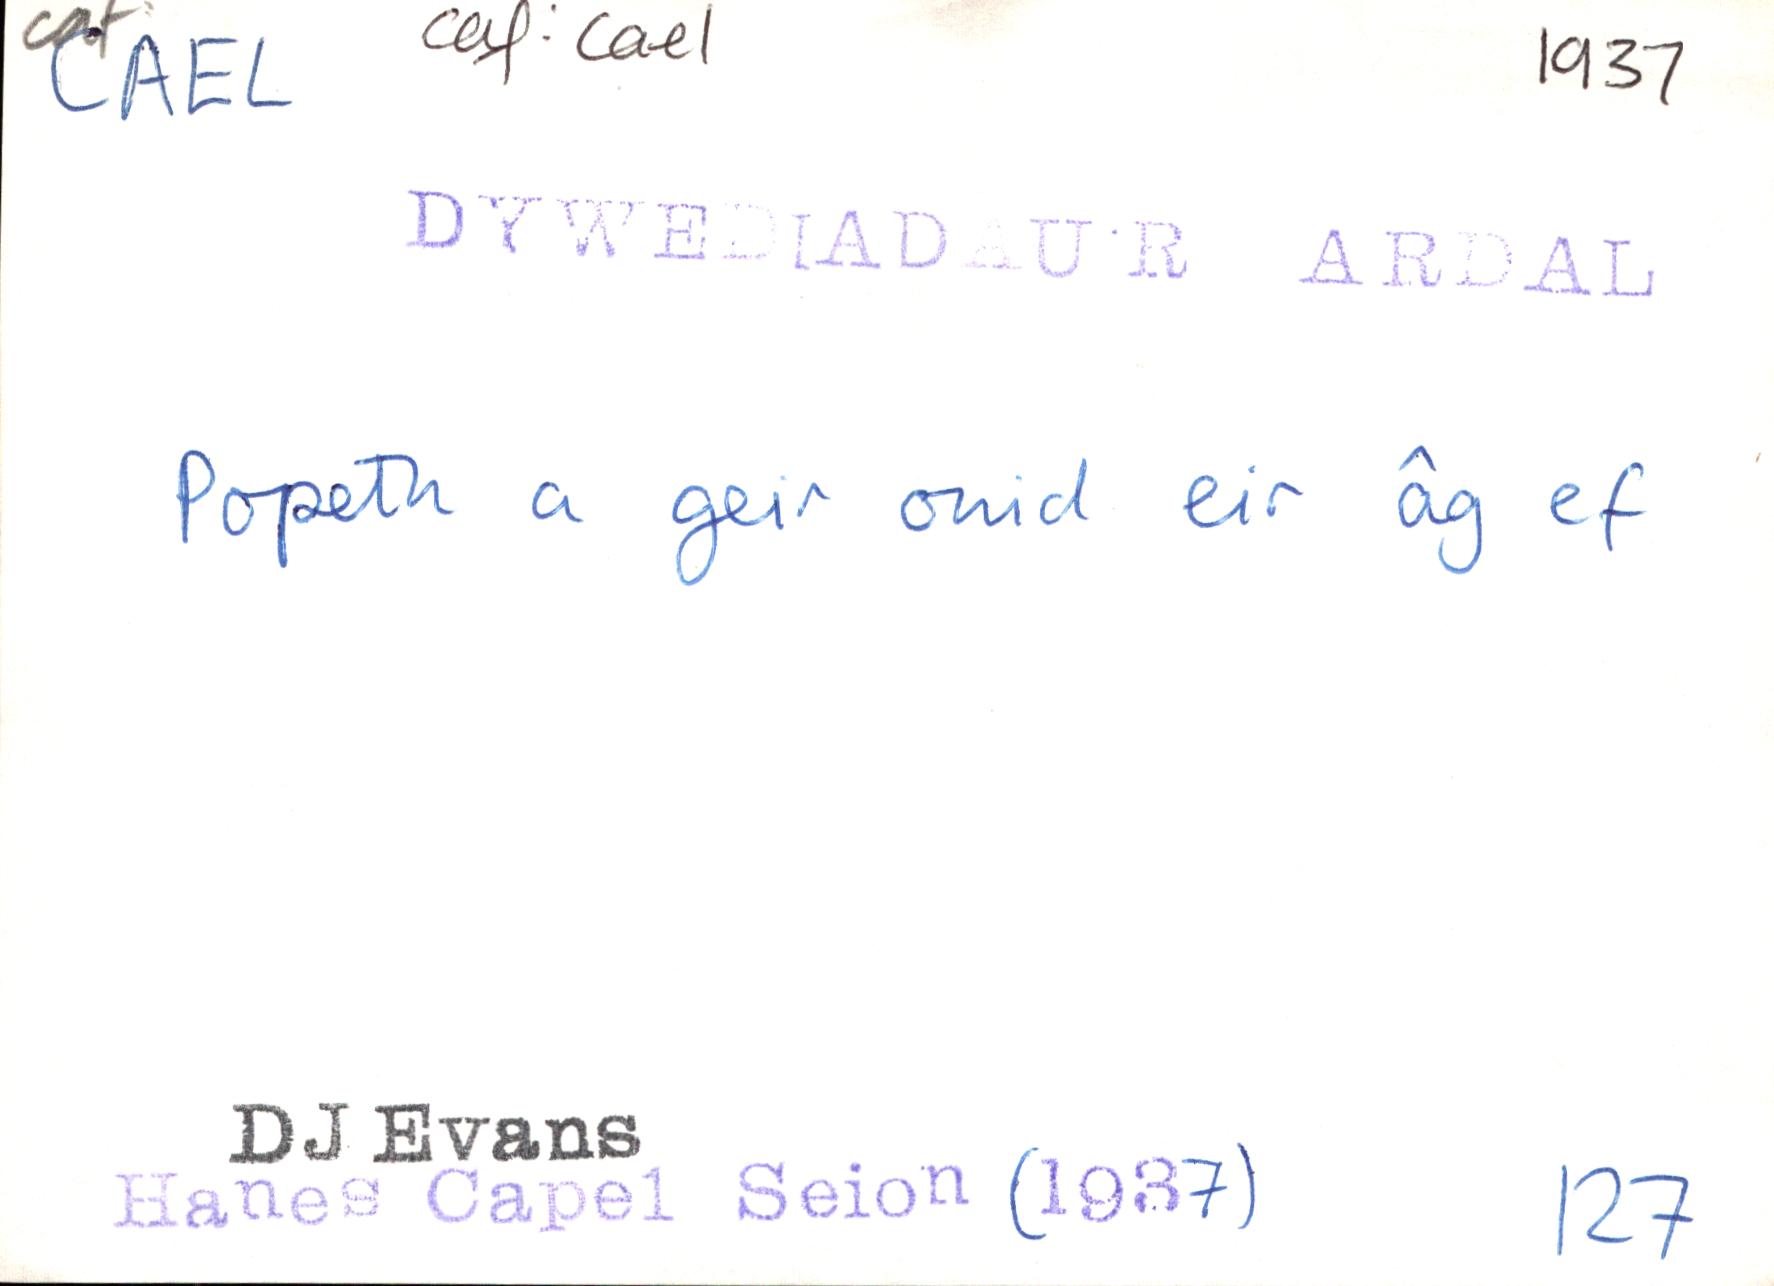 caf: CAEL caf: cael 1937
DYWEDIADAU'R ARDAL
Popeth a geir onid eir âg ef
DJ Evans
Hanes Capel Seion (1937) 127